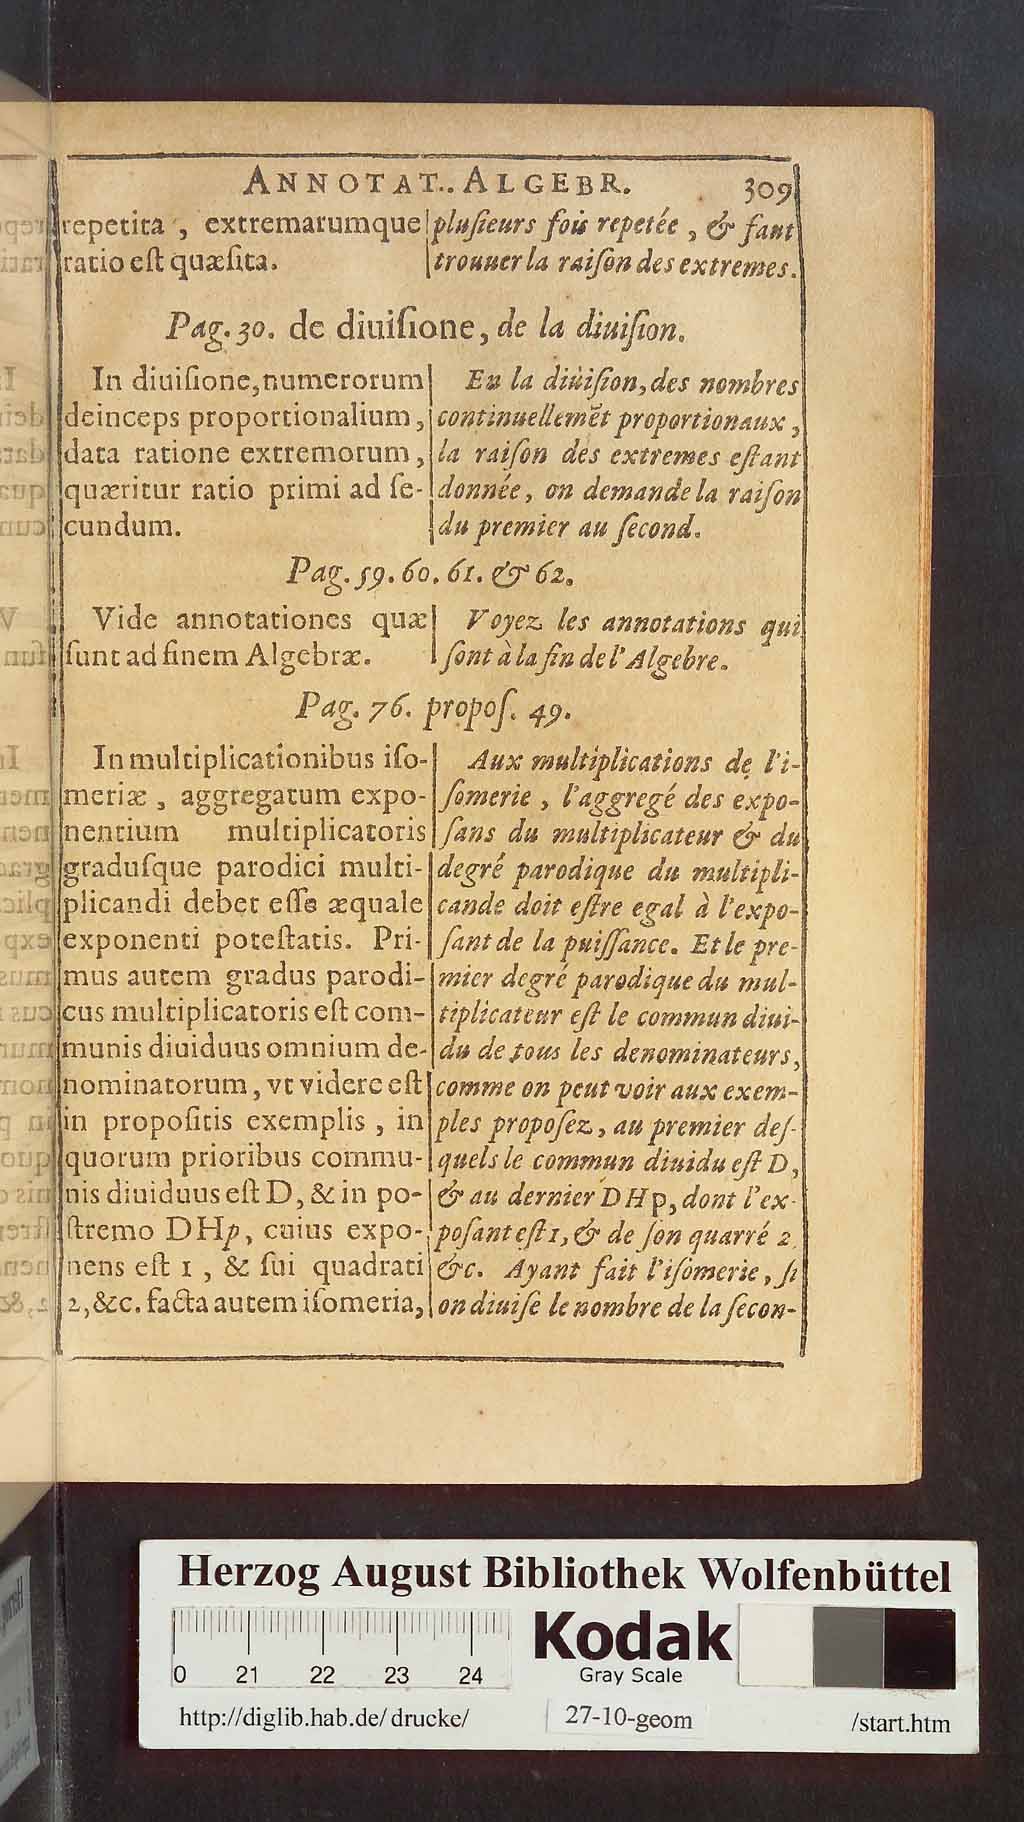 ANNOTAT.. ALGEBR. 309
repetita , extremarumque
ratio eſt quæſita.
pluſieurs fois repetée , & faut
trouuer la raiſon des extremes.
Pag. 30. de diuiſione, de la diuiſion.
In diuiſione, numerorum
deinceps proportionalium,
data ratione extremorum,
quæritur ratio primi ad ſe-
cundum.
En la diuiſion, des nombres
continuellemẽt proportionaux ,
la raiſon des extremes eſtant
donnée, on demande la raiſon
du premier au ſecond.
Pag. 59. 60. 61. & 62.
Vide annotationes quæ
ſunt ad finem Algebræ.
Voyez les annotations qui
ſont à la fin de l'Algebre.
Pag. 76. propoſ. 49.
In multiplicationibus iſo-
meriæ , aggregatum expo-
nentium multiplicatoris
graduſque parodici multi-
plicandi debet eſſe æquale
exponenti poteſtatis. Pri-
mus autem gradus parodi-
cus multiplicatoris eſt com-
munis diuiduus omnium de-
nominatorum, vt videre eſt
in propoſitis exemplis , in
quorum prioribus commu-
nis diuiduus eſt D, & in po-
ſtremo DHp, cuius expo-
nens eſt 1 , & ſui quadrati
2, &c. facta autem iſomeria,
Aux multiplications de l'i-
ſomerie , l'aggregé des expo-
ſans du multiplicateur & du
degré parodique du multipli-
cande doit eſtre egal à l'expo-
ſant de la puiſſance. Et le pre-
mier degré parodique du mul-
tiplicateur eſt le commun diui-
du de tous les denominateurs,
comme on peut voir aux exem-
ples propoſez, au premier deſ-
quels le commun diuidu eſt D,
& au dernier DHp, dont l'ex-
poſant eſt 1, & de ſon quarré 2,
&c. Ayant fait l'iſomerie, ſi
on diuiſe le nombre de la ſecon-
Herzog August Bibliothek Wolfenbüttel
0 21 22 23 24
Kodak
Gray Scale
http://diglib.hab.de/drucke/ 27-10-geom /start.htm